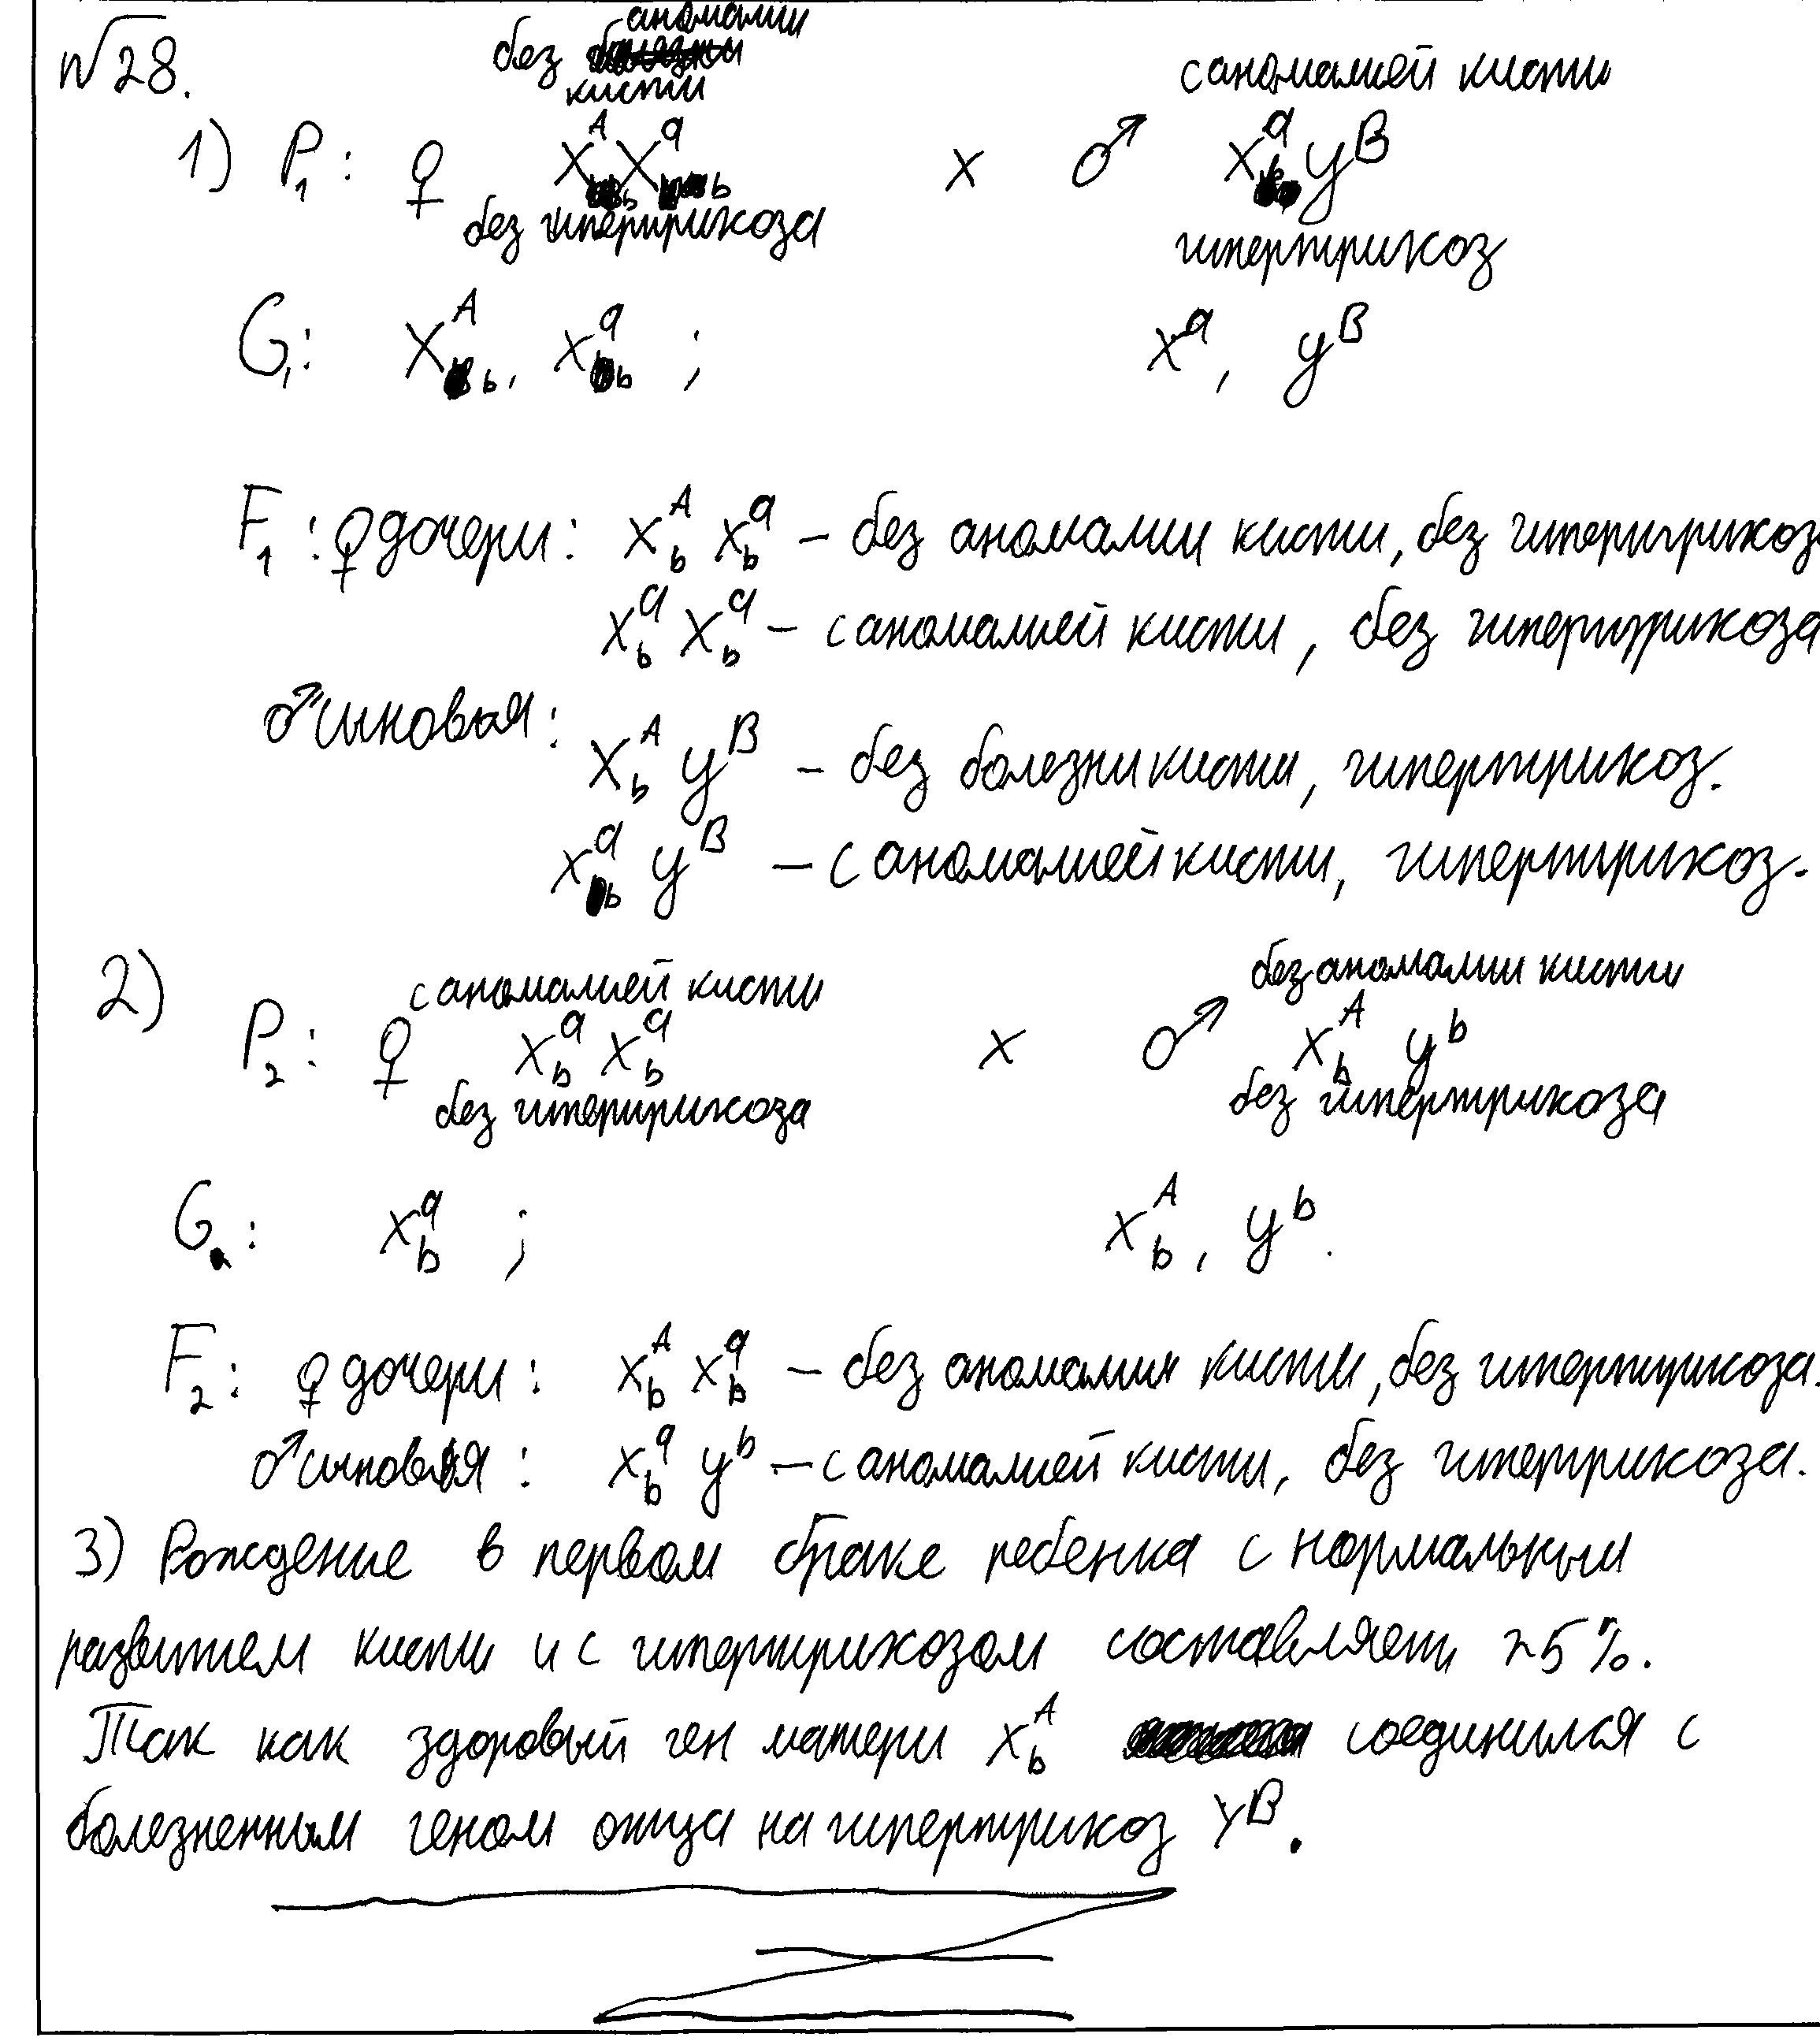 №28.
без аномалии кисти
с аномалией кисти
1) P₁: ♀ Xᴬb Xᵃb x ♂ Xᵃb yᴮ
без гипертрихоза
гипертрихоз
G₁: Xᴬb, Xᵃb ; Xᵃ, yᴮ
F₁: ♀ дочери: Xᴬb Xᵃb – без аномалии кисти, без гипертрихоз
Xᵃb Xᵃb – с аномалией кисти, без гипертрихоза
♂ сыновья: Xᴬb yᴮ – без болезни кисти, гипертрихоз.
Xᵃb yᴮ – с аномалией кисти, гипертрихоз.
2)
с аномалией кисти
без аномалии кисти
P₂: ♀ Xᵃb Xᵃb x ♂ Xᴬb yᵇ
без гипертрихоза
без гипертрихоза
G: Xᵃb ; Xᴬb, yᵇ.
F₂: ♀ дочери: Xᴬb Xᵃb – без аномалия кисти, без гипертрихоза.
♂ сыновья: Xᵃb yᵇ – с аномалией кисти, без гипертрихоза.
3) Рождение в первом браке ребенка с нормальным
развитием кисти и с гипертрихозом составляет 25%.
Так как здоровый ген матери Xᴬb соединился с
болезненным геном отца на гипертрихоз Yᴮ.